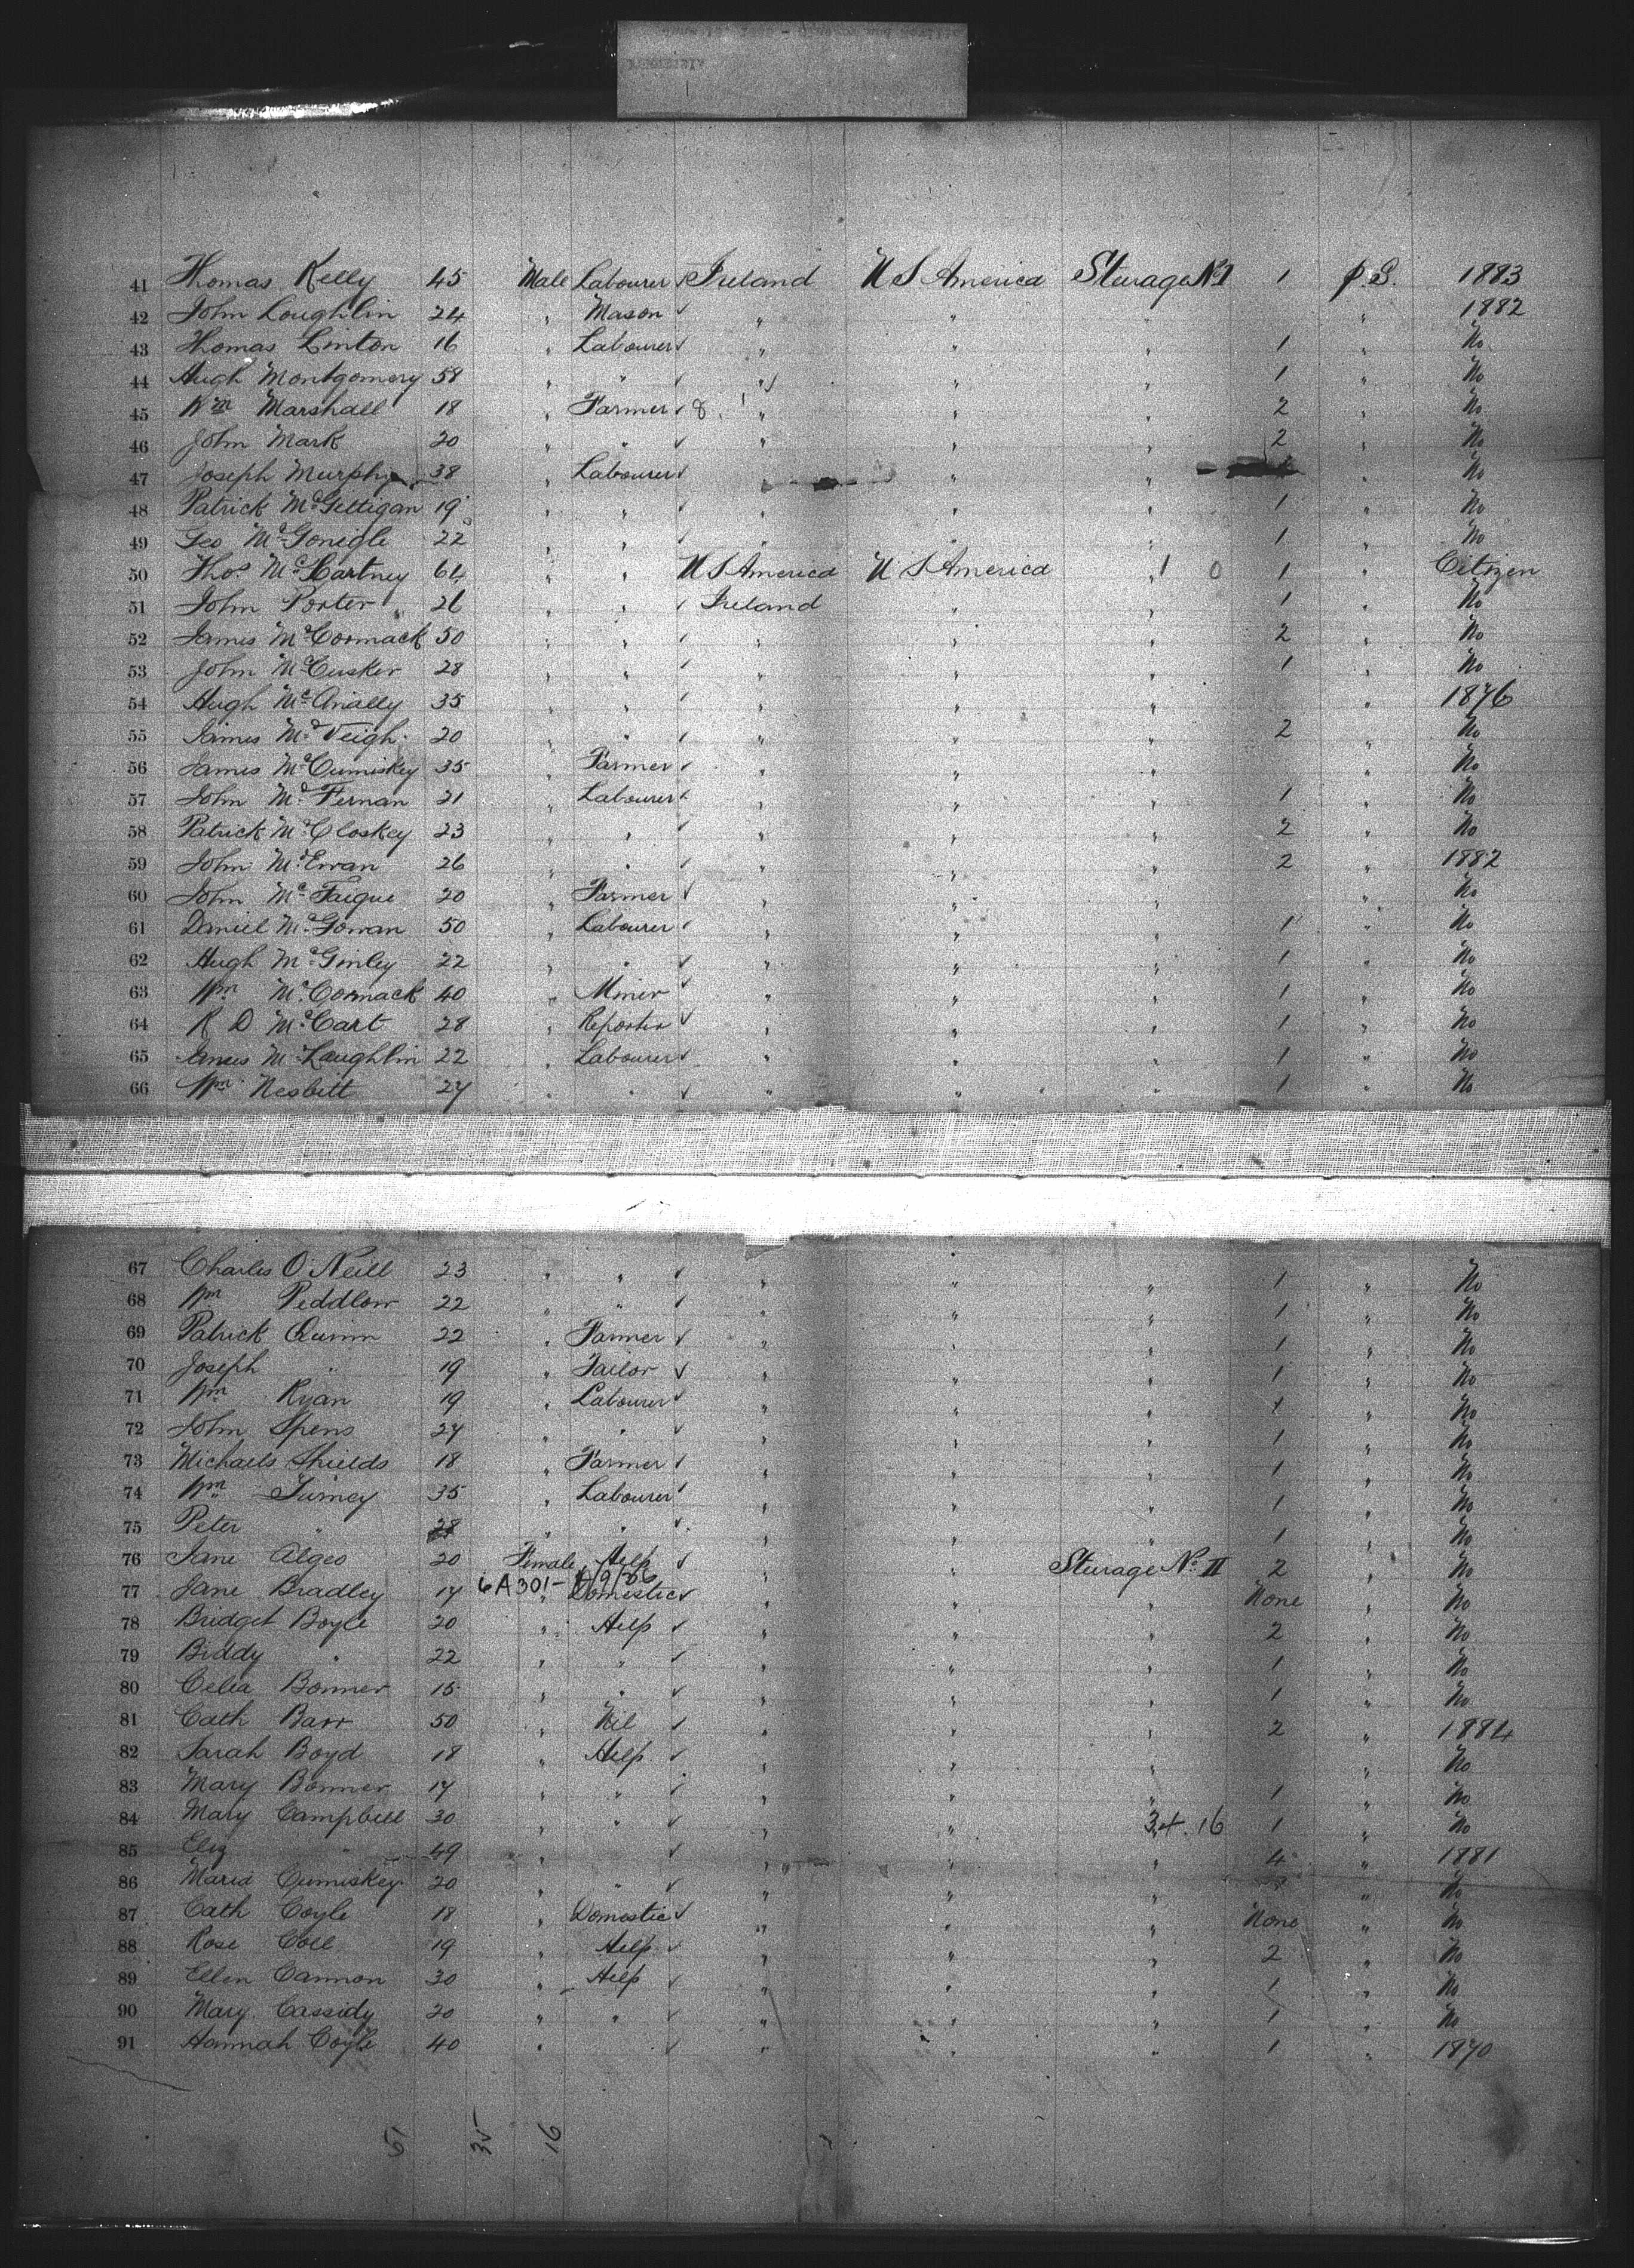 41 Thomas Kelly 45 Male Labourer ✓ Ireland U S America Sturage No I 1 P.S. 1883
42 John Loughlin 24 " Mason ✓ " " " " 1882
43 Thomas Linton 16 " Labourer ✓ " " " 1 " No
44 Hugh Montgomery 58 " " ✓ " " " 1 " No
45 Wm Marshall 18 " Farmer ✓ " " " 2 " No
46 John Mark 20 " " ✓ " " " 2 " No
47 Joseph Murphy 38 " Labourer ✓ " " No
48 Patrick McGettigan 19 " " ✓ " " " 1 " No
49 Geo McGonigle 22 " " ✓ " " " 1 " No
50 Thos McCartney 64 " " U S America U S America " 1 0 1 " Citizen
51 John Porter 26 " " ✓ Ireland " " 1 " No
52 James McCormack 50 " " ✓ " " " 2 " No
53 John McCusker 28 " " ✓ " " " 1 " No
54 Hugh McAnally 35 " " ✓ " " " " 1876
55 James McVeigh 20 " " ✓ " " " 2 " No
56 James McCumiskey 35 " Farmer ✓ " " " " No
57 John McFernan 21 " Labourer ✓ " " " 1 " No
58 Patrick McCloskey 23 " " ✓ " " " 2 " No
59 John McErvan 26 " " ✓ " " " 2 " 1882
60 John McTaigue 20 " Farmer ✓ " " " " No
61 Daniel McGowan 50 " Labourer ✓ " " " 1 " No
62 Hugh McGinley 22 " " ✓ " " " 1 " No
63 Wm McCormack 40 " Miner ✓ " " " 1 " No
64 R D McCart 28 " Reporter ✓ " " " 1 " No
65 James McLaughlin 22 " Labourer ✓ " " " 1 " No
66 Wm Nesbitt 27 " " ✓ " " " 1 " No
67 Charles O'Neill 23 " " ✓ " " " 1 " No
68 Wm Peddlow 22 " " ✓ " " " 1 " No
69 Patrick Quinn 22 " Farmer ✓ " " " 1 " No
70 Joseph " 19 " Tailor ✓ " " " 1 " No
71 Wm Ryan 19 " Labourer ✓ " " " 1 " No
72 John Spens 27 " " ✓ " " " 1 " No
73 Michael Shields 18 " Farmer ✓ " " " 1 " No
74 Wm Turney 35 " Labourer ✓ " " " 1 " No
75 Peter " 28 " " ✓ " " " 1 " No
76 Jane Algeo 20 Female Help ✓ " " Sturage No II 2 " No
6A301- 4/9/26
77 Jane Bradley 17 " Domestic ✓ " " " None " No
78 Bridget Boyle 20 " Help ✓ " " " 2 " No
79 Biddy " 22 " " ✓ " " " 1 " No
80 Celia Bonner 15 " " ✓ " " " 1 " No
81 Cath Barr 50 " Nil ✓ " " " 2 " 1884
82 Sarah Boyd 18 " Help ✓ " " " " No
83 Mary Bonner 17 " " ✓ " " " 1 " No
84 Mary Campbell 30 " " ✓ " " 34.16 1 " No
85 Eliz " 49 " ✓ " " " 4 " 1881
86 Maria Cumiskey 20 " " ✓ " " " " No
87 Cath Coyle 18 " Domestic ✓ " " " None " No
88 Rose Coll 19 " Help ✓ " " " 2 " No
89 Ellen Cannon 30 " Help ✓ " " " 1 " No
90 Mary Cassidy 20 " " ✓ " " " 1 " No
91 Hannah Coyle 40 " ✓ " " " 1 " 1870
51 35 16